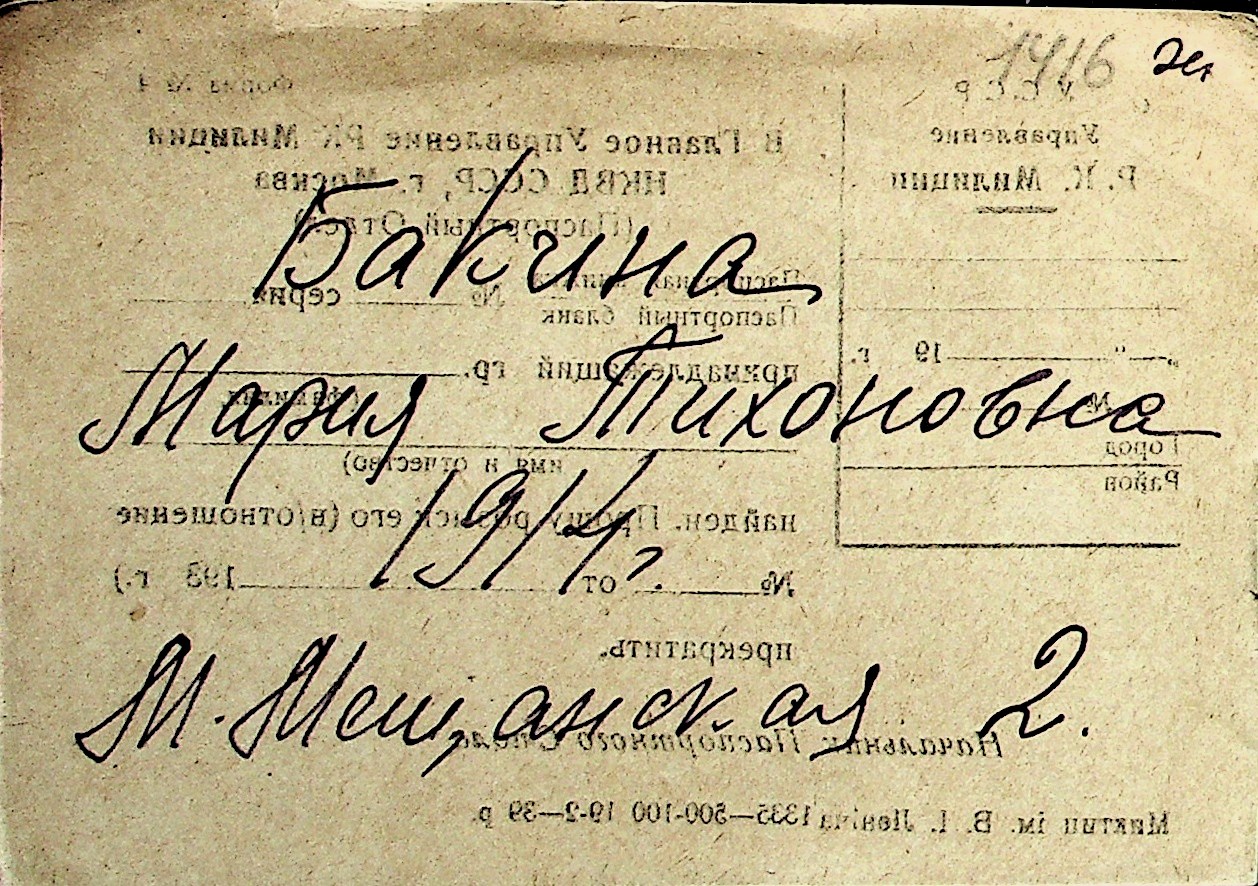 1416
Бакина
Мария Тихоновна
1914 г.
М. Мещанская 2.
Форма № 4
В Главное Управление РК Милиции
НКВД СССР, г. Москва
(Паспортный Отдел)
Паспортная
Паспортный бланк
№ серия
принадлежащий гр.
(фамилия
имя и отчество)
найден. Прошу розыск его (в/отношение
№ от 193 г.)
прекратить.
Начальник Паспортного Стола
УССР
Управление
Р. К. Милиции
„ “ 19 г.
№
Город
Район
Миктип ім. В. І. Леніна 1335—500-100 19-2—39 р.